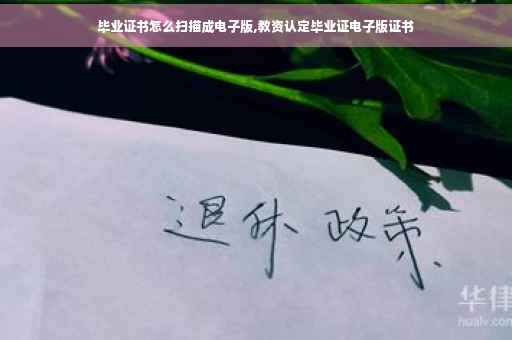 毕业证书怎么扫描成电子版,教资认定毕业证电子版证书
退休 政策
华律
hualv.com